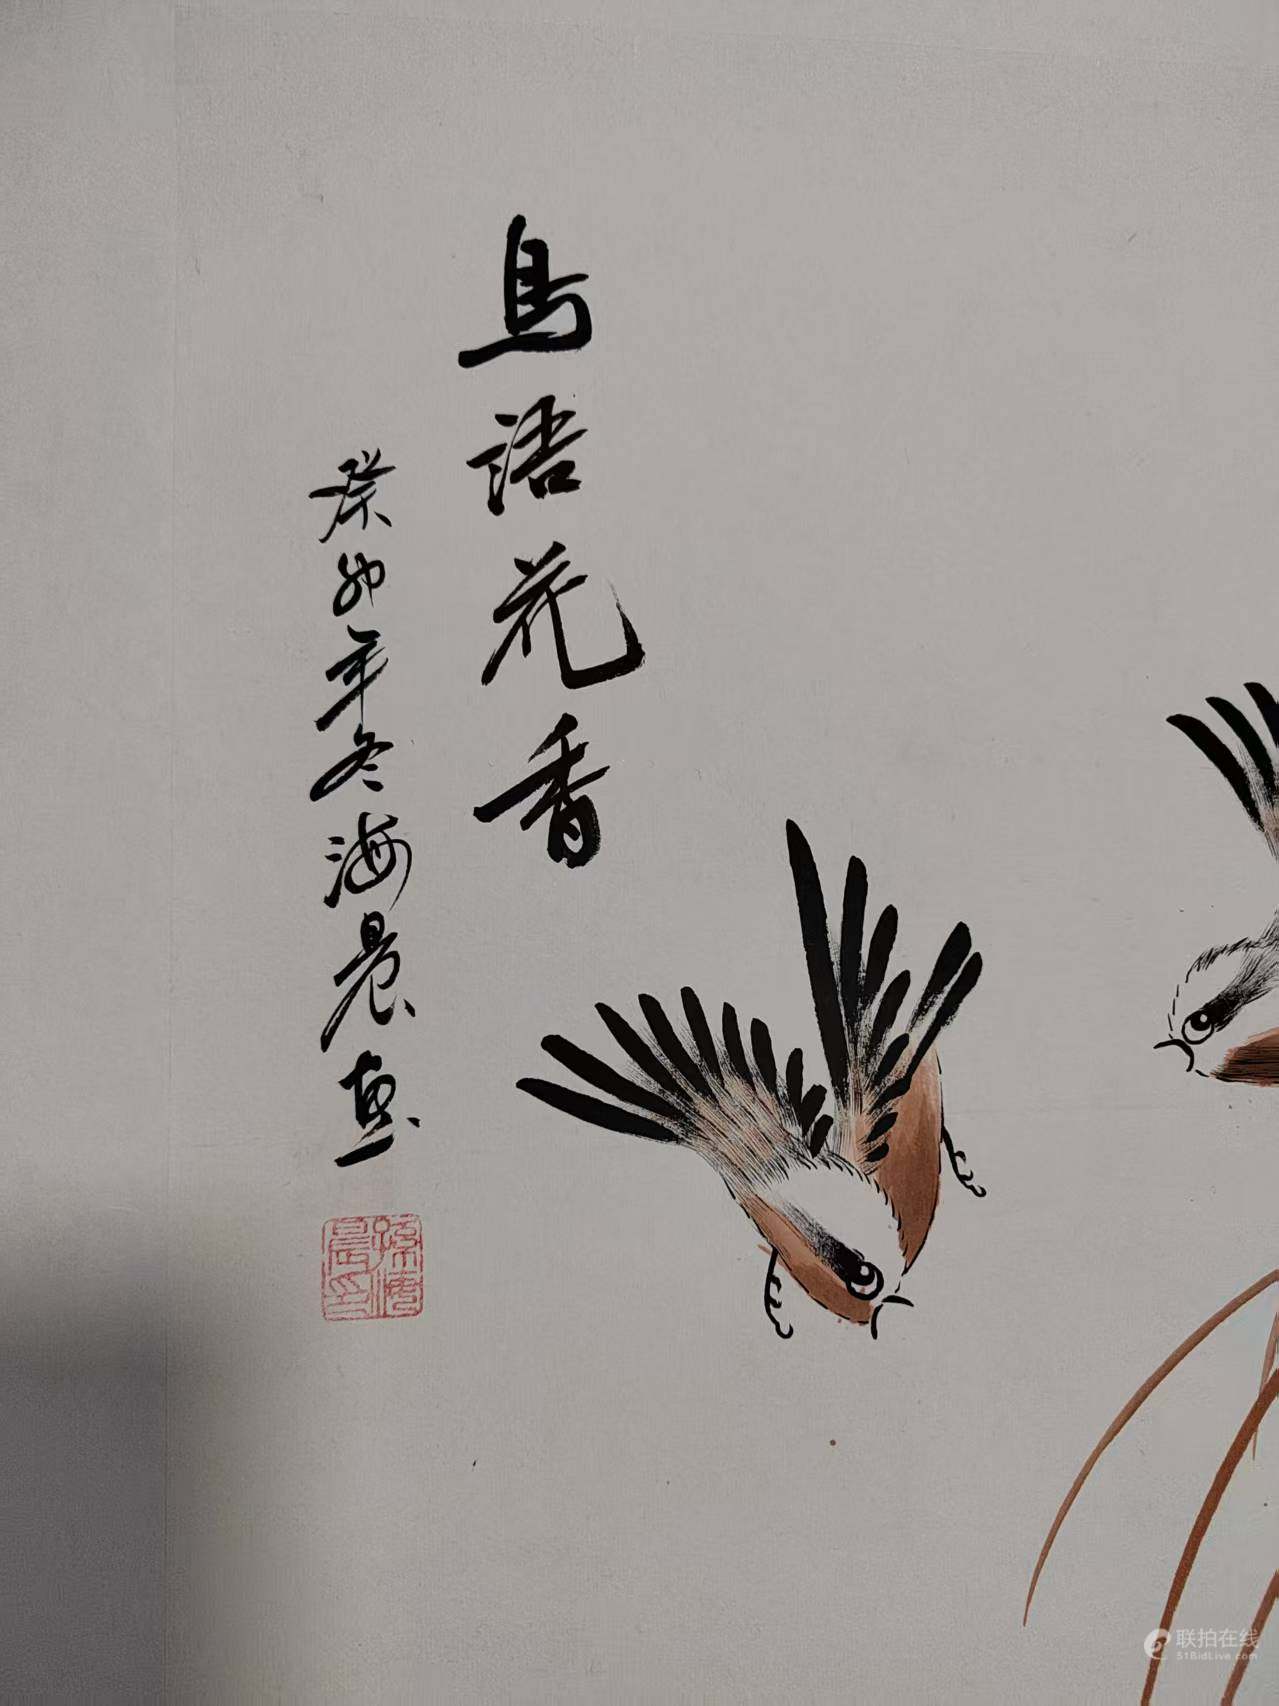 鳥语花香
癸卯年冬海晨画
孫海
晨印
联拍在线
51BidLive.com